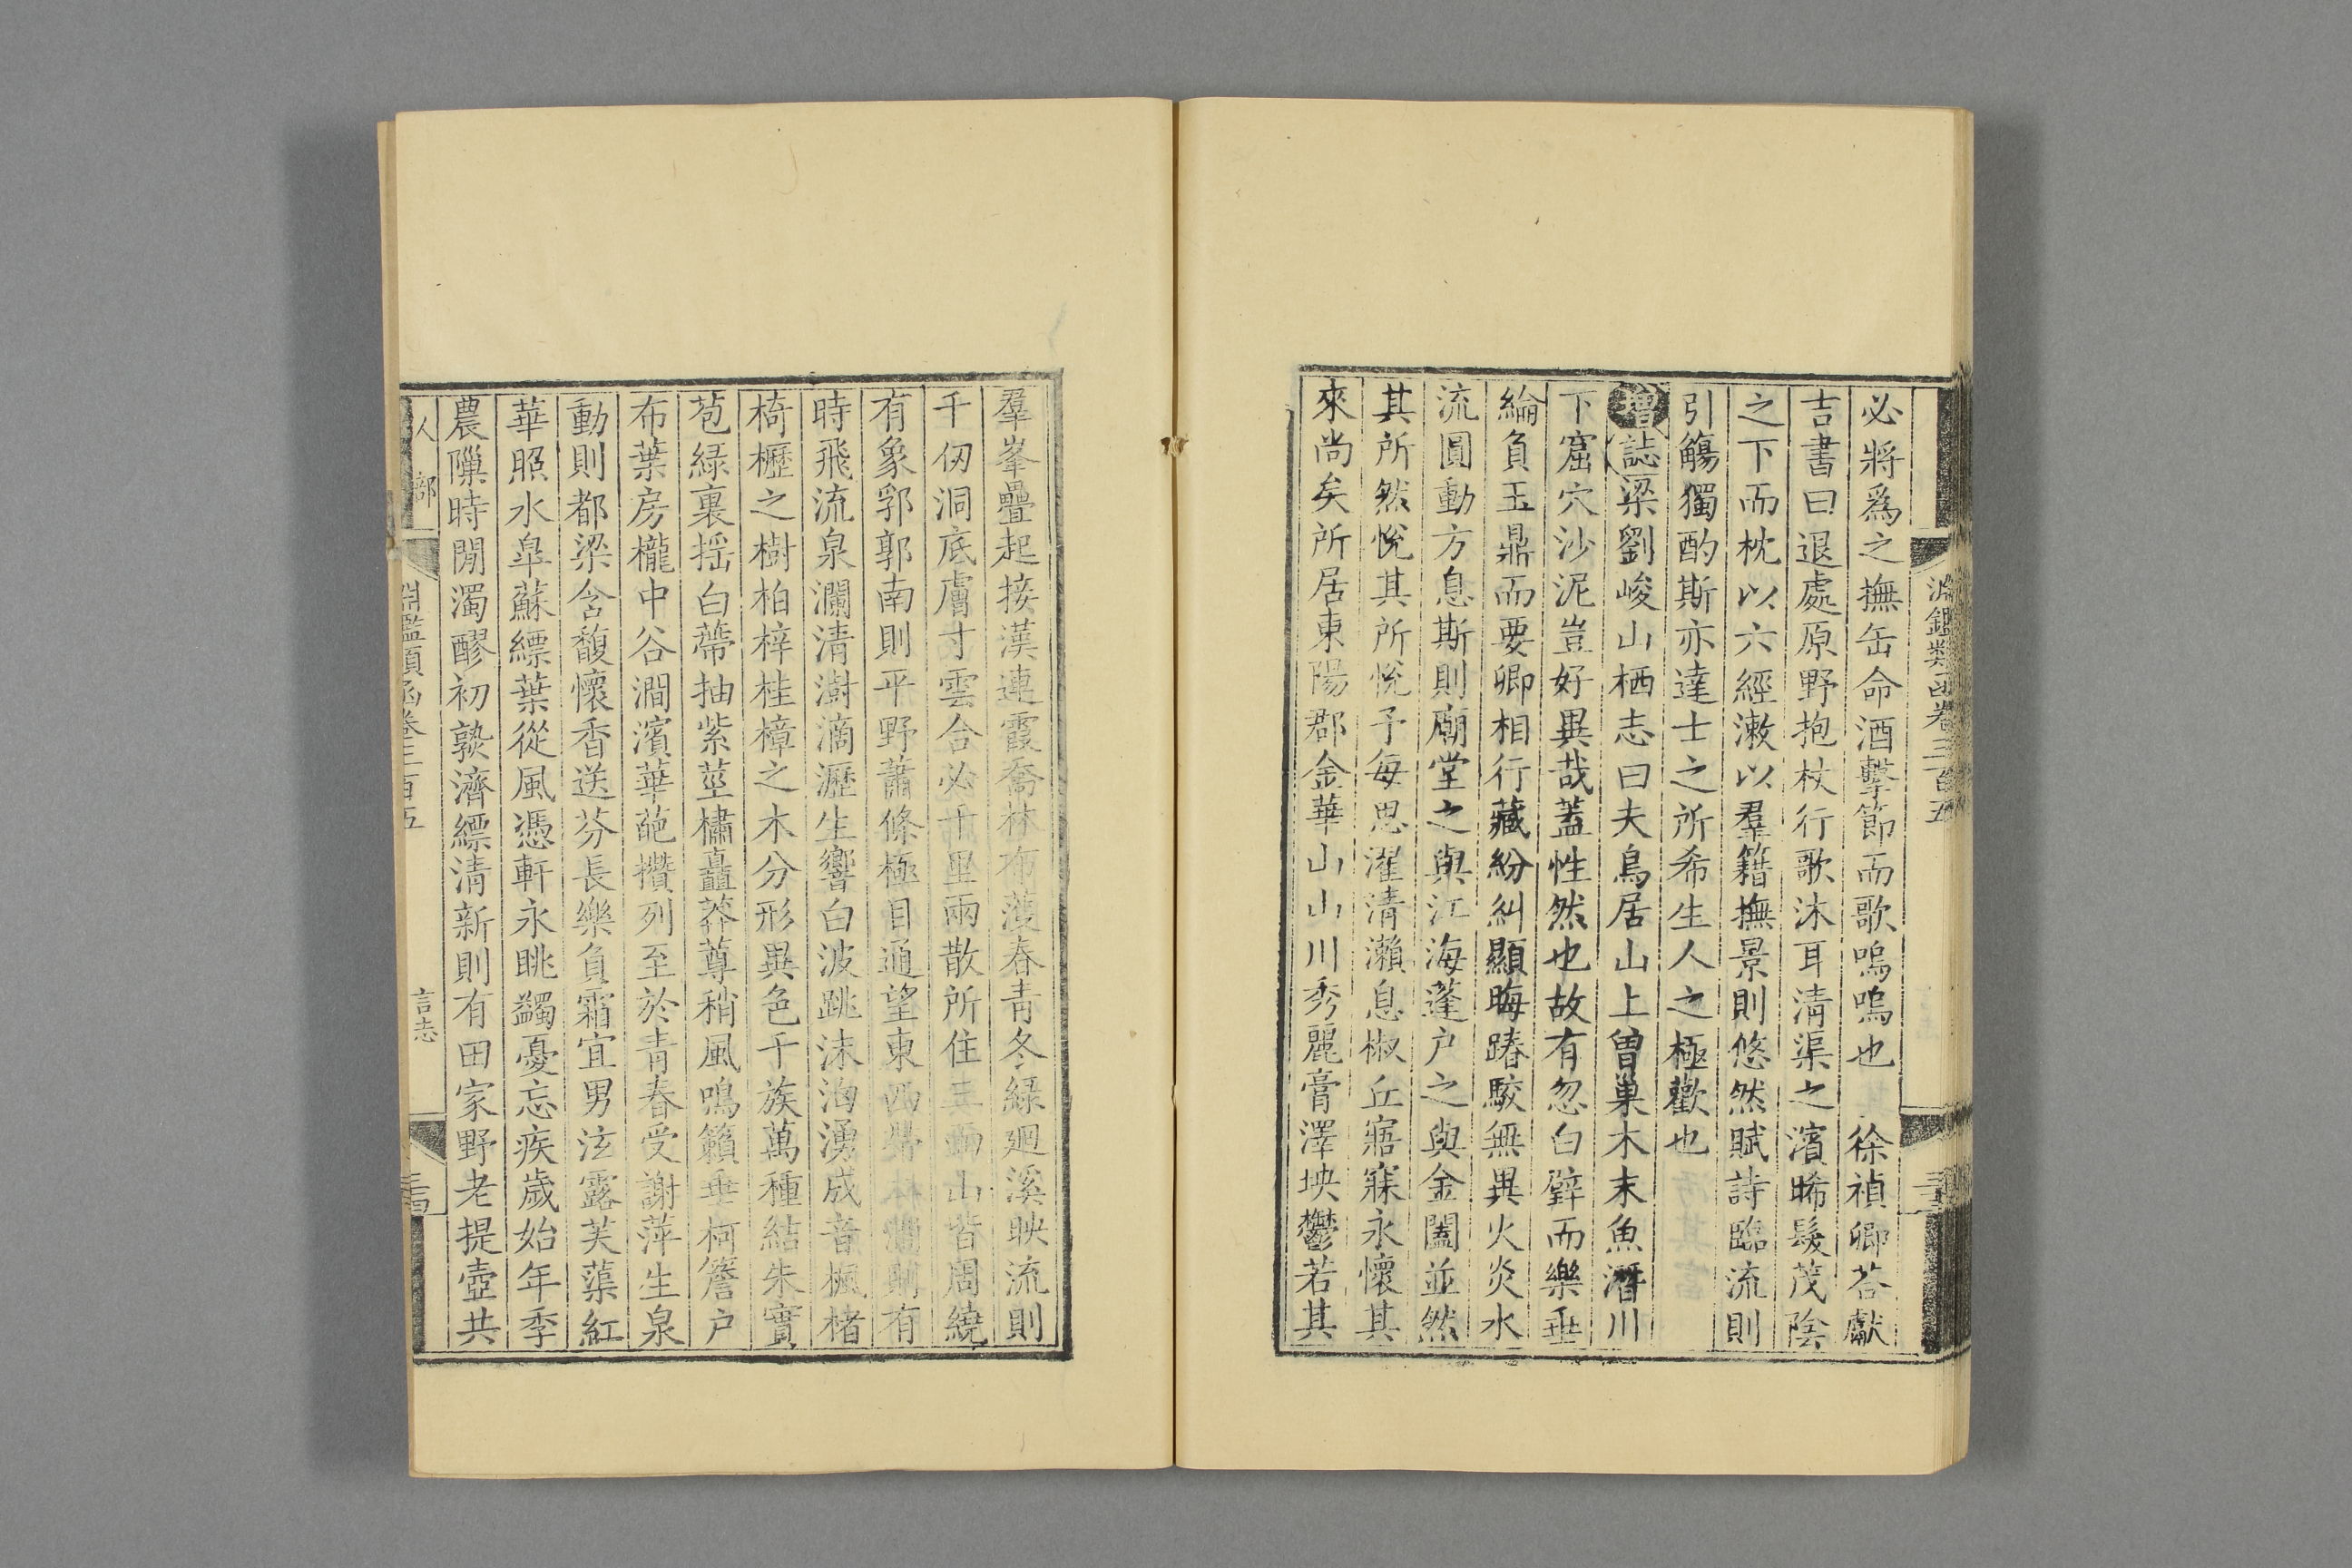 淵鑑類函卷三百五
必將爲之撫缶命酒擊節而歌嗚嗚也 徐禎卿荅獻
吉書曰退處原野抱杖行歌沐耳清渠之濱晞髮茂陰
之下而枕以六經漱以羣籍撫景則悠然賦詩臨流則
引觴獨酌斯亦達士之所希生人之極歡也
增誌梁劉峻山栖志曰夫鳥居山上曾巢木末魚潛川
下窟穴沙泥豈好異哉蓋性然也故有忽白璧而樂垂
綸負玉鼎而要卿相行藏紛糾顯晦踳駮無異火炎水
流圓動方息斯則廟堂之與江海蓬户之與金闔並然
其所然悅其所悅予每思濯清瀨息椒丘寤寐永懷其
來尚矣所居東陽郡金華山山川秀麗膏澤坱鬱若其
羣峯疊起接漢連霞喬林布濩春青冬綠廻溪映流則
千仞洞底膚寸雲合必千里雨散所住三面山皆周繞
有象郛郭南則平野蕭條極目通望東西帶 澗則有
時飛流泉瀾清澍滴瀝生響白波跳沫洶湧成音楓楮
椅櫪之樹柏梓桂樟之木分形異色千族萬種結朱實
苞綠裏搖白蔕抽紫莖橚矗莽蓴稍風鳴籟垂柯簷户
布葉房櫳中谷澗濱華葩攢列至於青春受謝萍生泉
動則都梁含馥懷香送芬長樂負霜宜男泫露芙蕖紅
華照水皐蘇縹葉從風憑軒永眺蠲憂忘疾歲始年季
農隟時閒濁醪初孰濟縹清新則有田家野老提壺共
人部 淵鑑類函卷三百五 言志